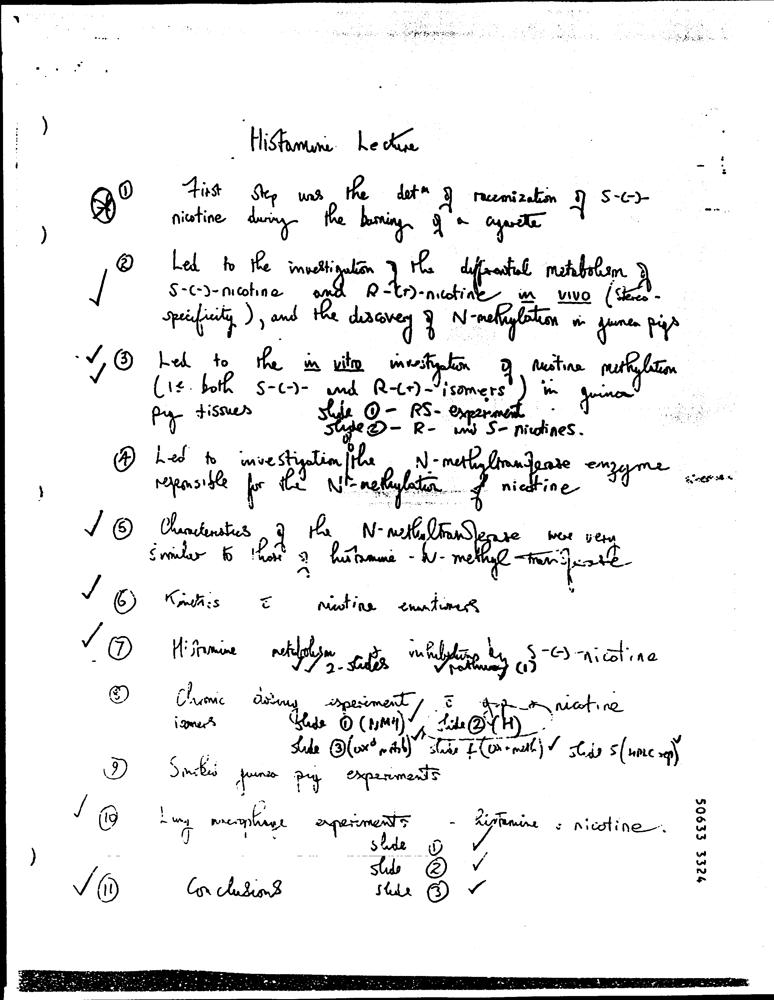 Histamine Lecture
① First step was the detⁿ of racemization of S-(-)-
nicotine during the burning of a cigarette
② Led to the investigation of the differential metabolism of
S-(-)-nicotine and R-(+)-nicotine in vivo (Stereo-
specificity), and the discovery of N-methylation in guinea pigs
③ Led to the in vitro investigation of nicotine methylation
(ie. both S-(-)- and R-(+)-isomers) in guinea
pig tissues slide ① - RS- experiment
slide ② - R- and S- nicotines.
④ Led to investigation of the N-methyltransferase enzyme
responsible for the N-methylation of nicotine
⑤ Characteristics of the N-methyltransferase were very
similar to those of histamine-N-methyl-transferase
⑥ Kinetics c̄ nicotine enantiomers
⑦ Histamine metabolism inhibition by S-(-)-nicotine
2-slides pathway (1)
⑧ Chronic dosing experiment c̄ nicotine
isomers slide ① (NMN) slide ② (H)
slide ③ slide 4 (ox+meth) slide 5 (HPLC sep)
⑨ guinea pig experiments
⑩ Lung macrophage experiments - histamine : nicotine.
slide ①
slide ②
⑪ Conclusions slide ③
50633 3324